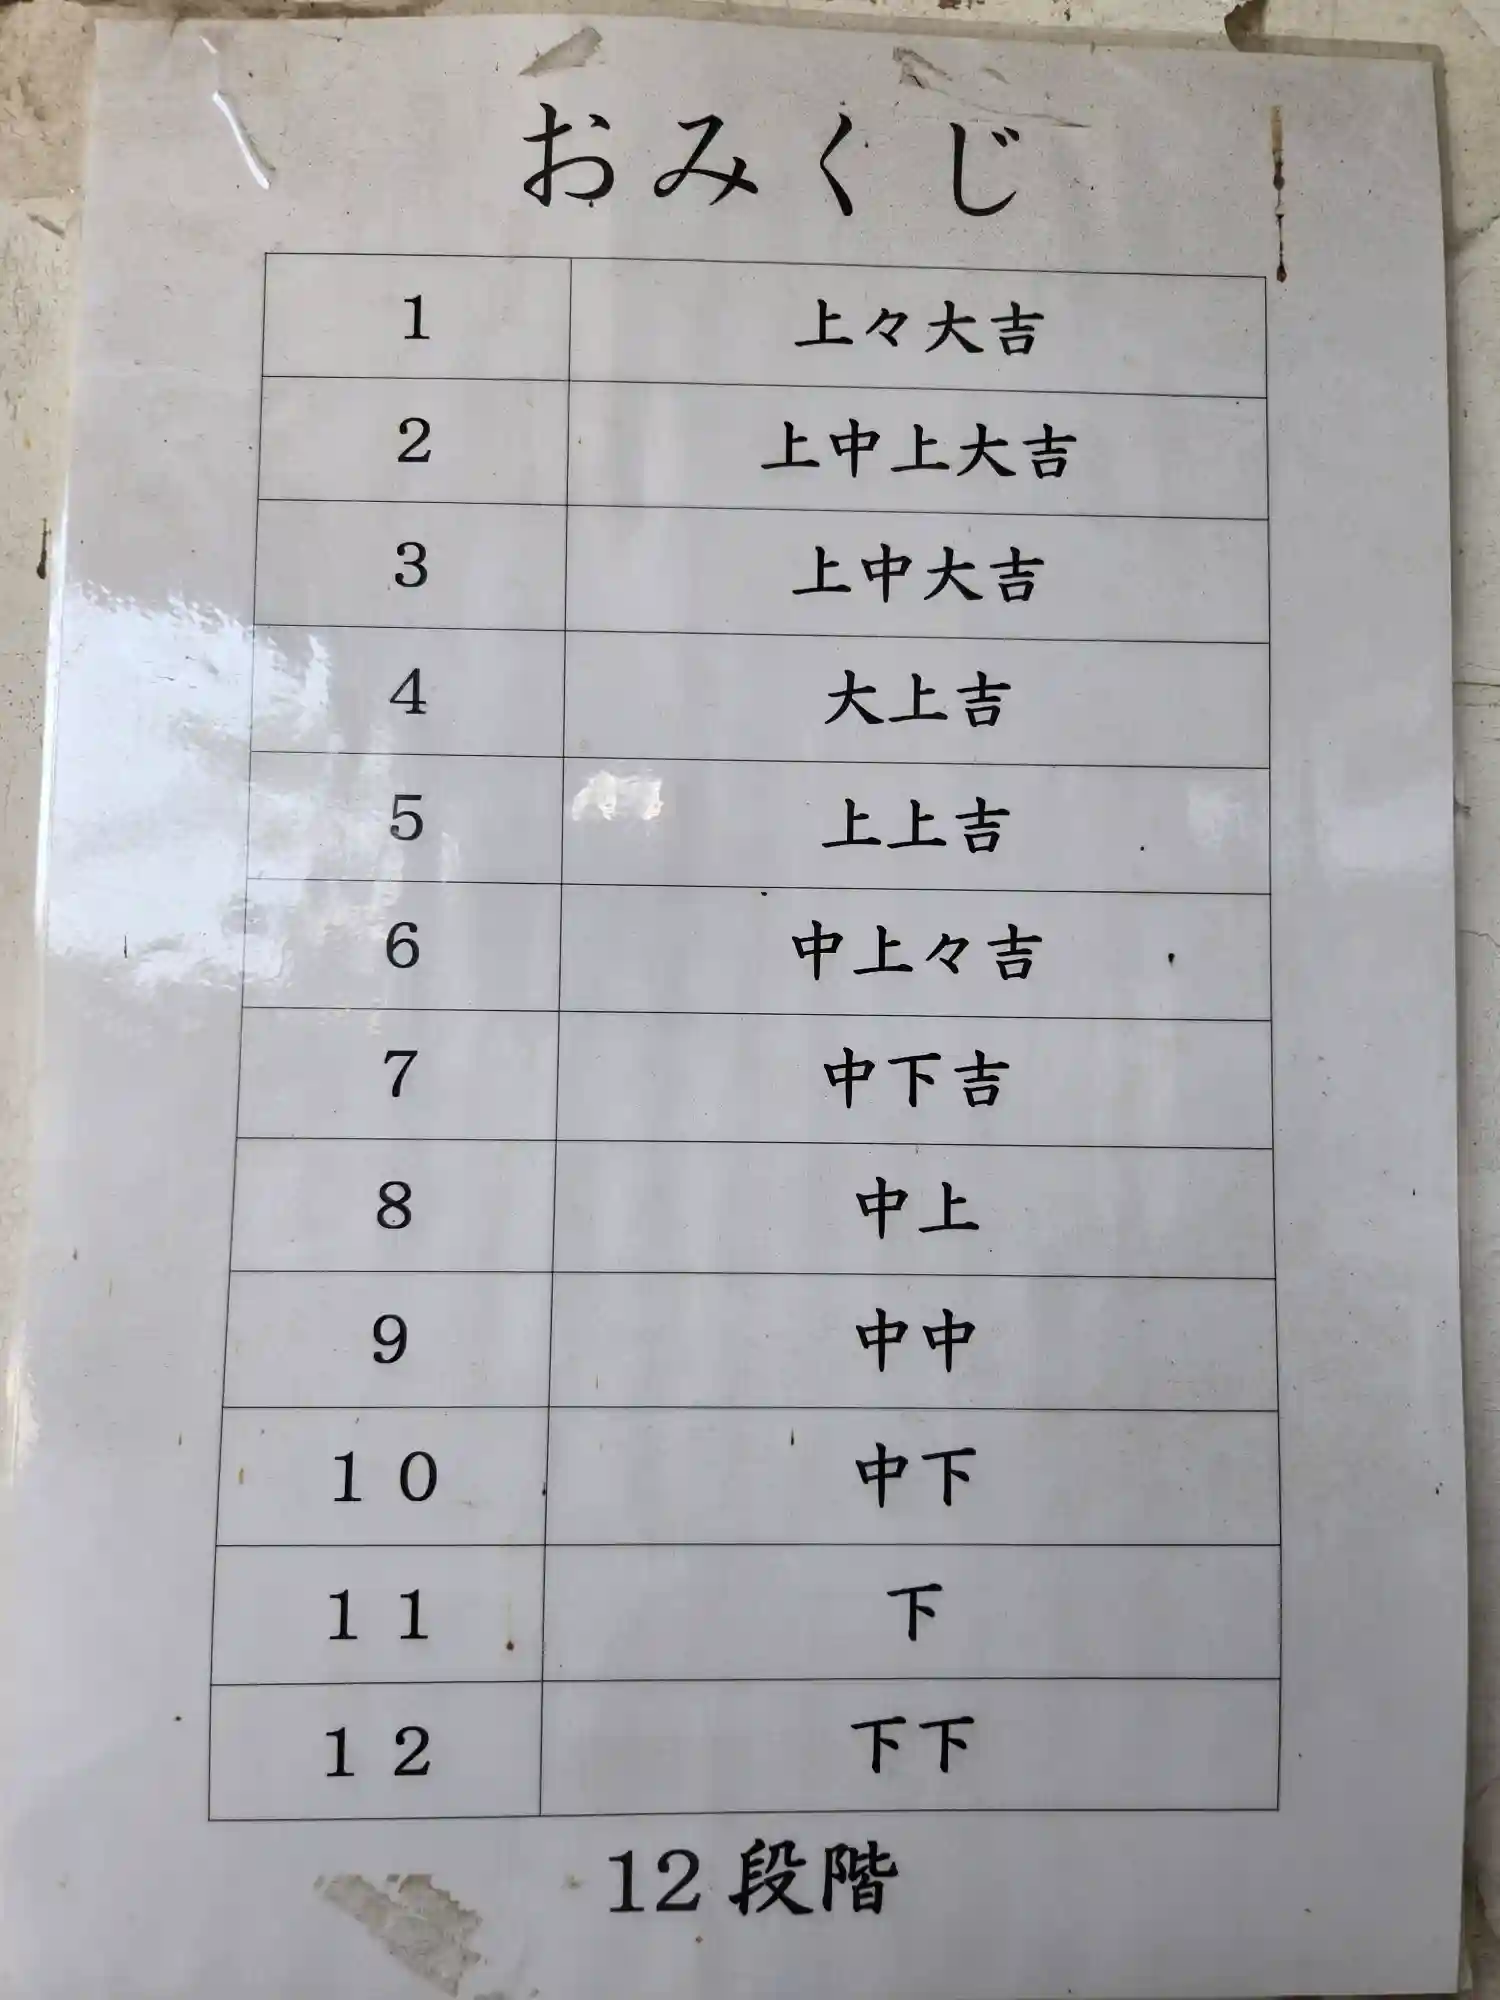 おみくじ
1 上々大吉
2 上中上大吉
3 上中大吉
4 大上吉
5 上上吉
6 中上々吉
7 中下吉
8 中上
9 中中
10 中下
11 下
12 下下
12段階